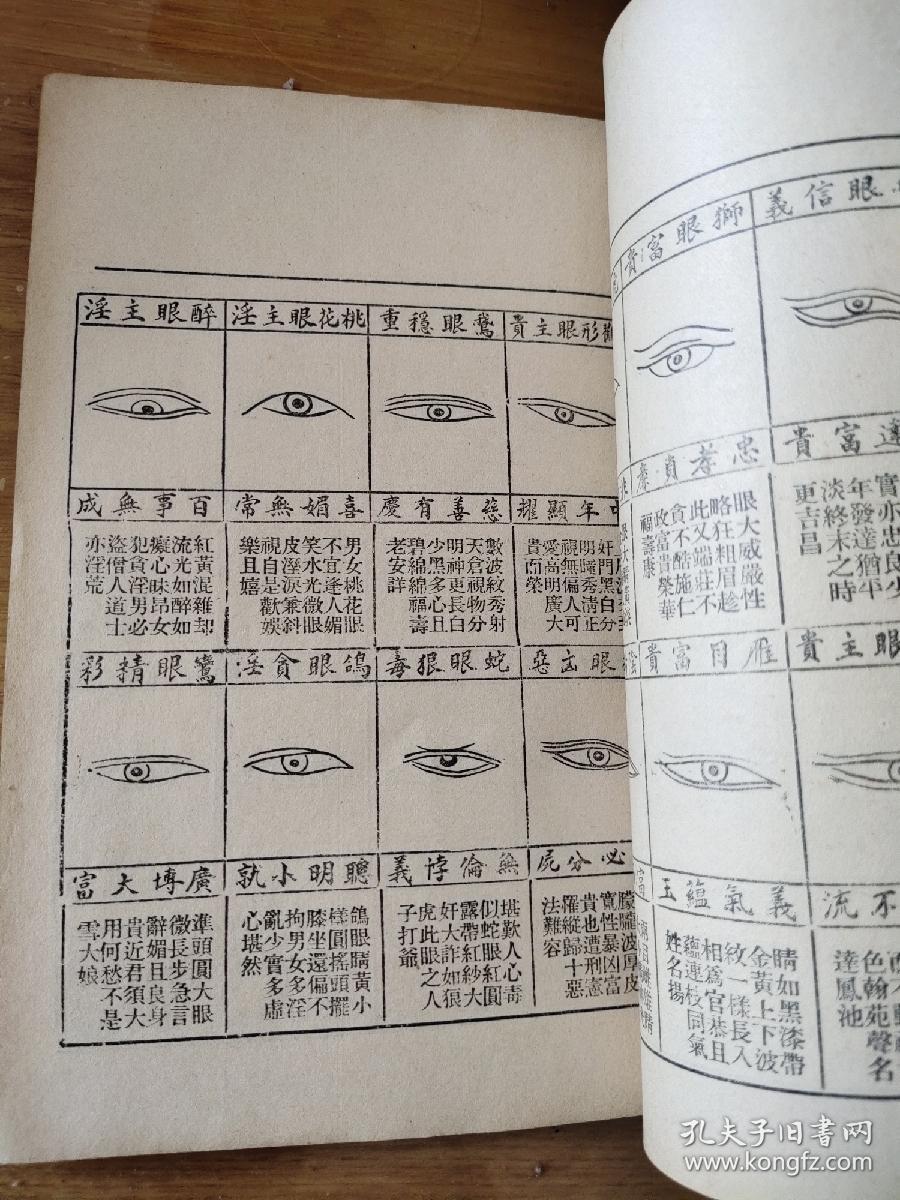 眼信義
獅眼富貴
達富貴
忠孝貞廉
實亦忠良少
年發達猶平
淡終末之時
更吉昌
眼大威嚴性
略狂粗眉趁
此又端莊不
貪不酷施仁
政富貴榮華
福壽康
眼主貴
雁目富貴
不流
義氣蘊玉
色翰苑聲名
達鳳池
睛如黑漆帶
金黃上下波
紋一樣長入
相為官恭且
蘊連枝同氣
姓名揚
形眼主貴
鵞眼穩重
桃花眼主淫
醉眼主淫
中年顯耀
慈善有慶
喜媚無常
百事無成
奸門黑白分
明曜秀清正
視無偏人可
愛高明廣大
貴而榮
數波紋秀射
天倉視物分
明神更長白
少黑多心且
碧綿綿福壽
老安詳
男女桃花眼
不宜逢人媚
笑水光微眼
皮溼淚兼斜
視自是歡娛
樂且嬉
紅黃混雜却
流光如醉如
癡心昧昂女
犯貪淫男必
盜僧人道士
亦淫荒
眼凶惡
蛇眼狠毒
鴿眼貪淫
鸞眼精彩
必分屍
無倫悖義
聰明小就
廣博大富
朦朧波厚皮
寬性暴凶富
貴也遭刑憲
羅縱歸十惡
法難容
堪歎人心毒
似蛇眼紅圓
露帶紅紗大
奸大詐如狼
虎此眼之人
子打爺
鴿眼睛黃小
樣圓搖頭擺
膝坐還偏不
拘男女多淫
亂少實多虛
心堪然
準頭圓大眼
微長步急言
辭媚且良身
貴近君須大
用何愁不是
雪大娘
孔夫子旧书网
www.kongfz.com